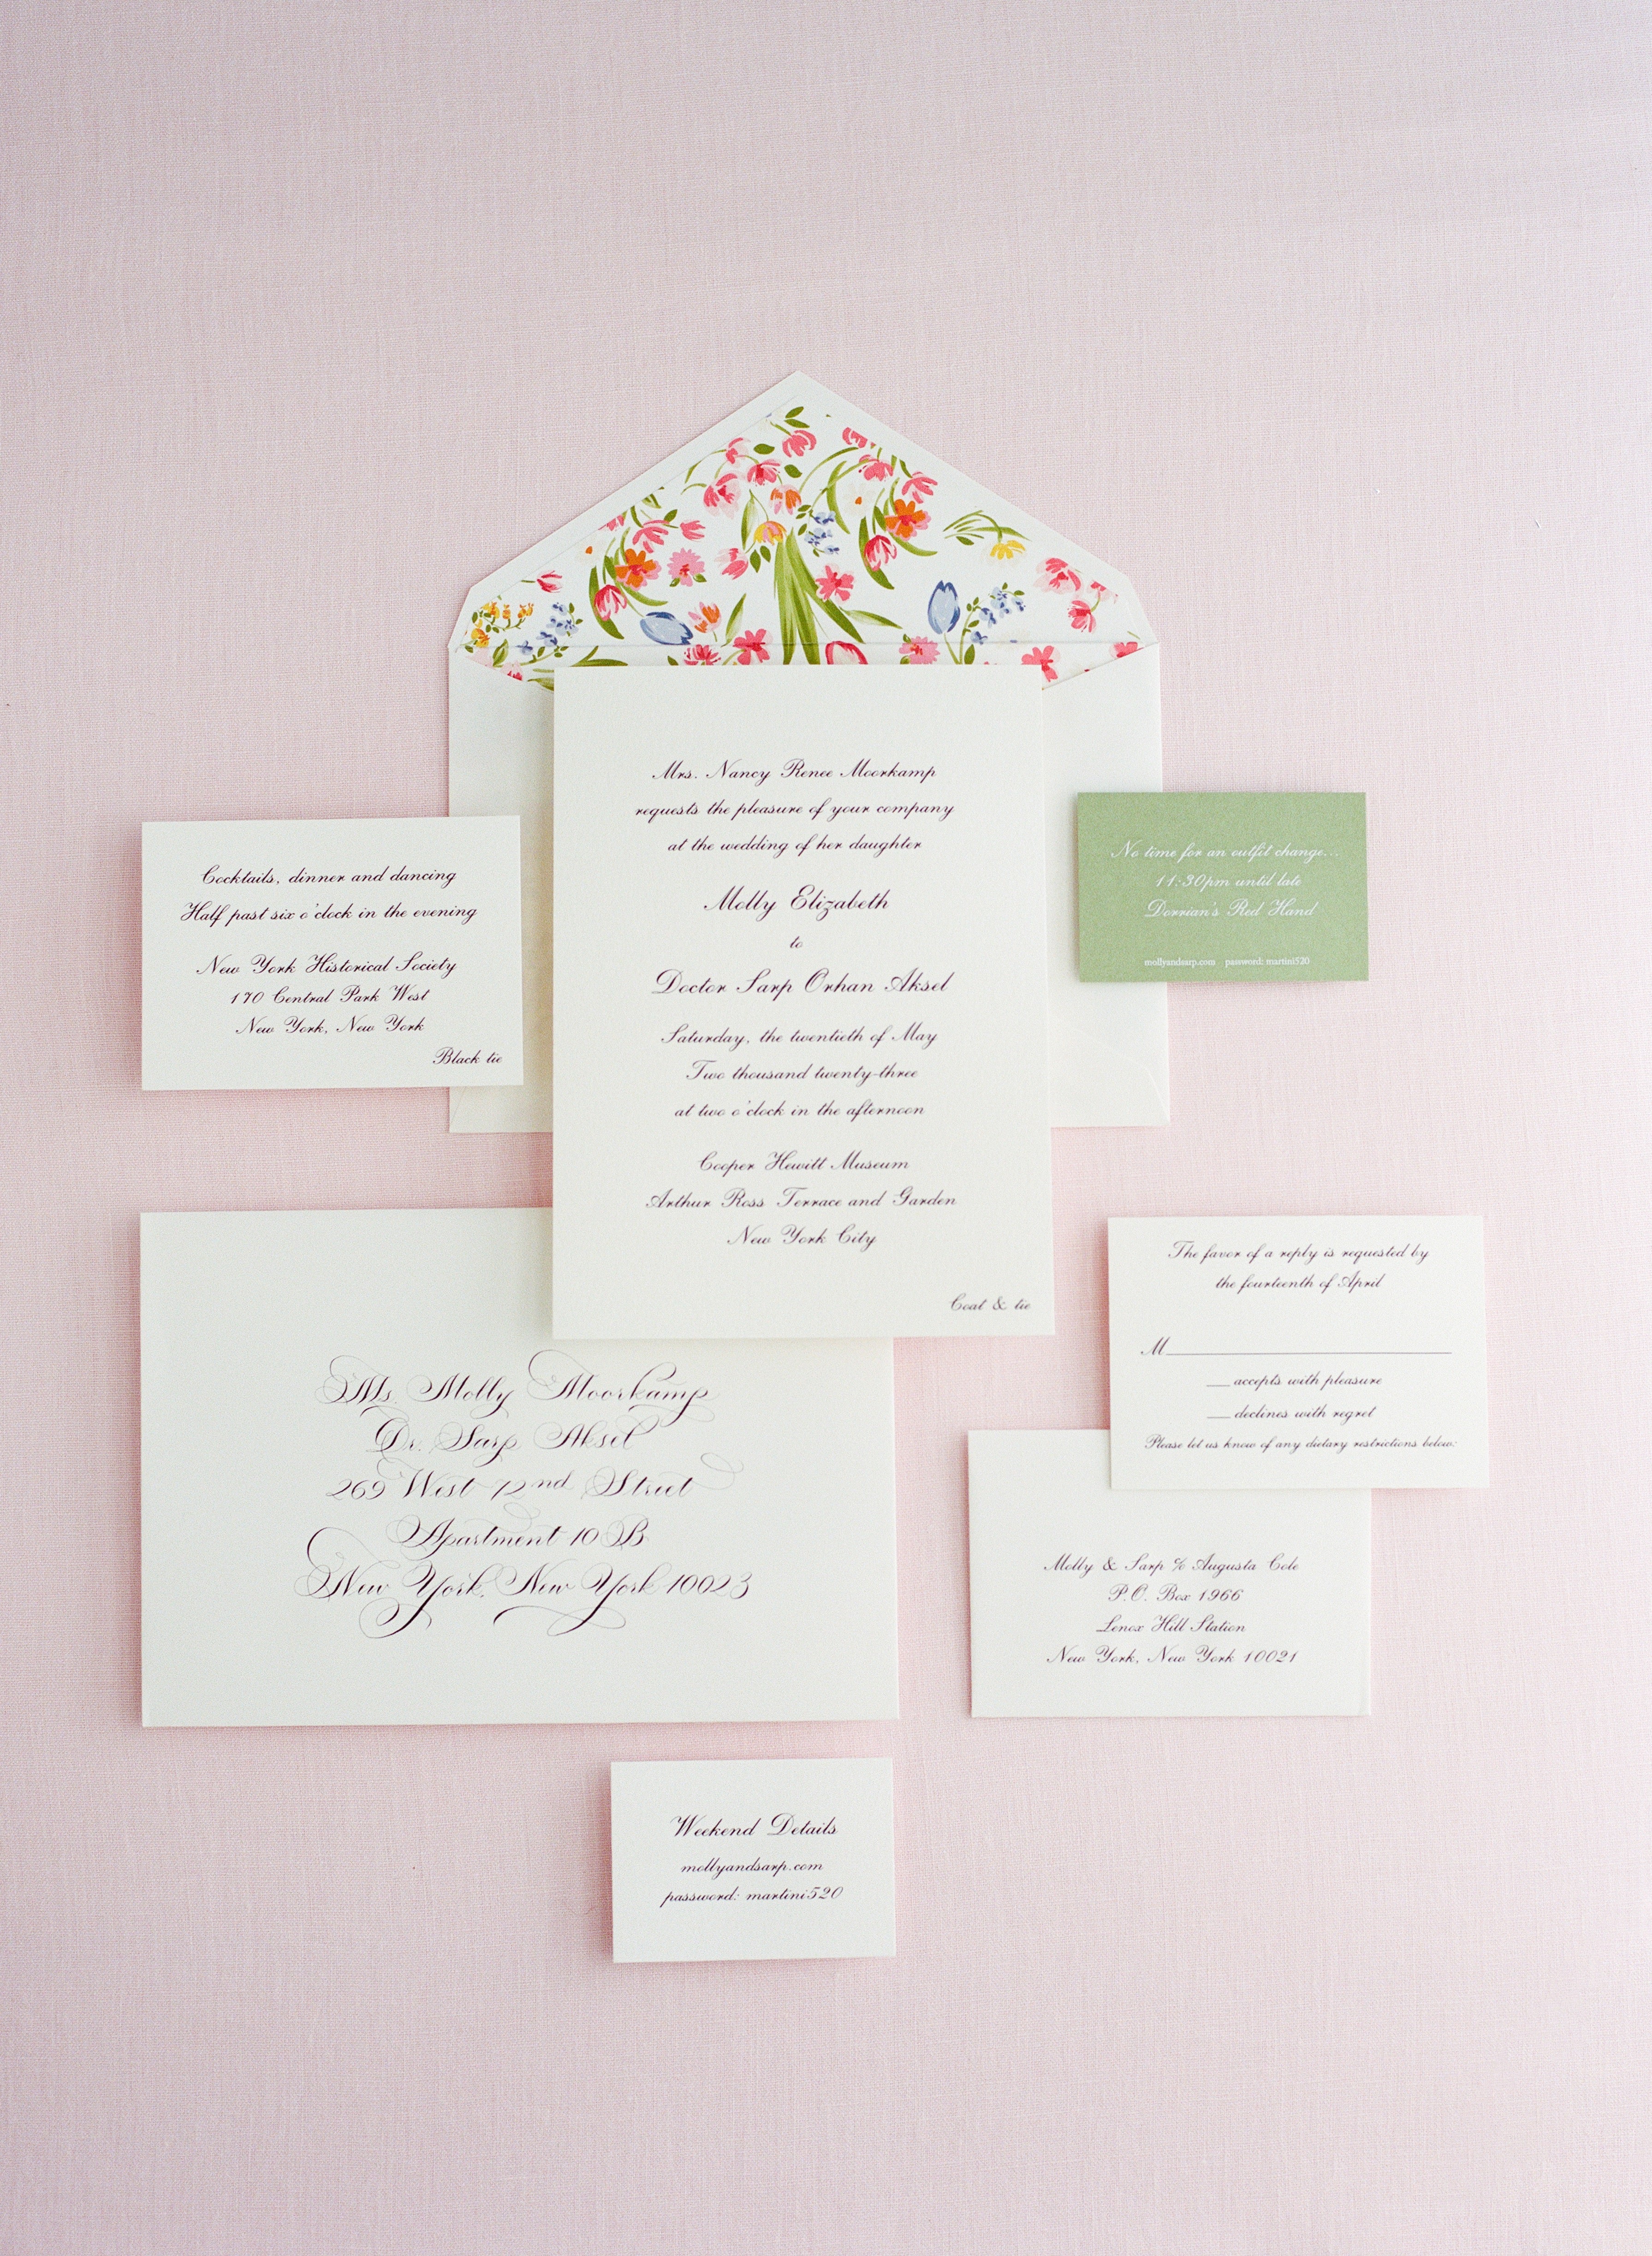 Mrs. Nancy Renee Moorkamp
requests the pleasure of your company
at the wedding of her daughter
Molly Elizabeth
to
Doctor Sarp Orhan Aksel
Saturday, the twentieth of May
Two thousand twenty-three
at two o'clock in the afternoon
Cooper Hewitt Museum
Arthur Ross Terrace and Garden
New York City
Coat & tie
Cocktails, dinner and dancing
Half past six o'clock in the evening
New York Historical Society
170 Central Park West
New York, New York
Black tie
No time for an outfit change...
11:30pm until late
Dorrian's Red Hand
mollyandsarp.com password: martini520
Ms. Molly Moorkamp
Dr. Sarp Aksel
269 West 72nd Street
Apartment 10 B
New York, New York 10023
The favor of a reply is requested by
the fourteenth of April
M
accepts with pleasure
declines with regret
Please let us know of any dietary restrictions below:
Molly & Sarp ℅ Augusta Cole
P.O. Box 1966
Lenox Hill Station
New York, New York 10021
Weekend Details
mollyandsarp.com
password: martini520